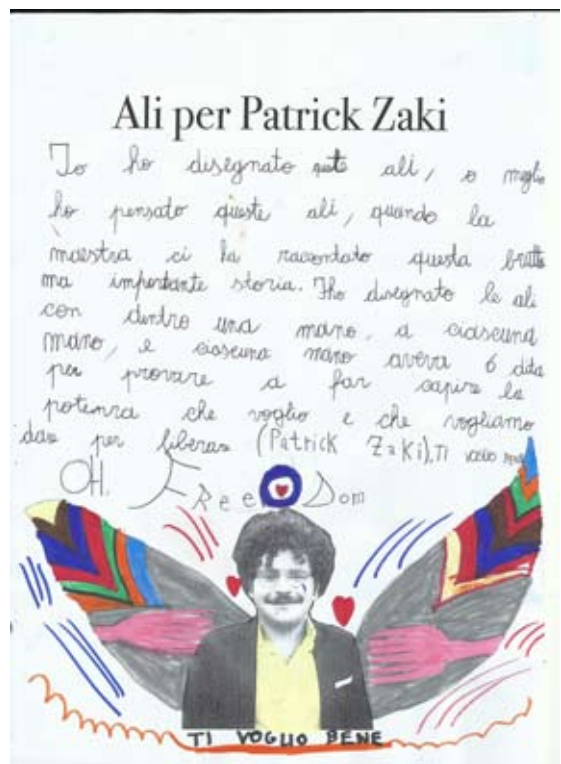 Ali per Patrick Zaki
Io ho disegnato queste ali, o meglio
ho pensato queste ali, quando la
maestra ci ha raccontato questa brutta
ma importante storia. Iho disegnato le ali
con dentro una mano, a ciascuna
mano, e ciascuna mano aveva 6 dita
per provare a far capire la
potenza che voglio e che vogliamo
dare per liberare (Patrick Zaki), Ti voglio bene
OH. FReeDom
TI VOGLIO BENE